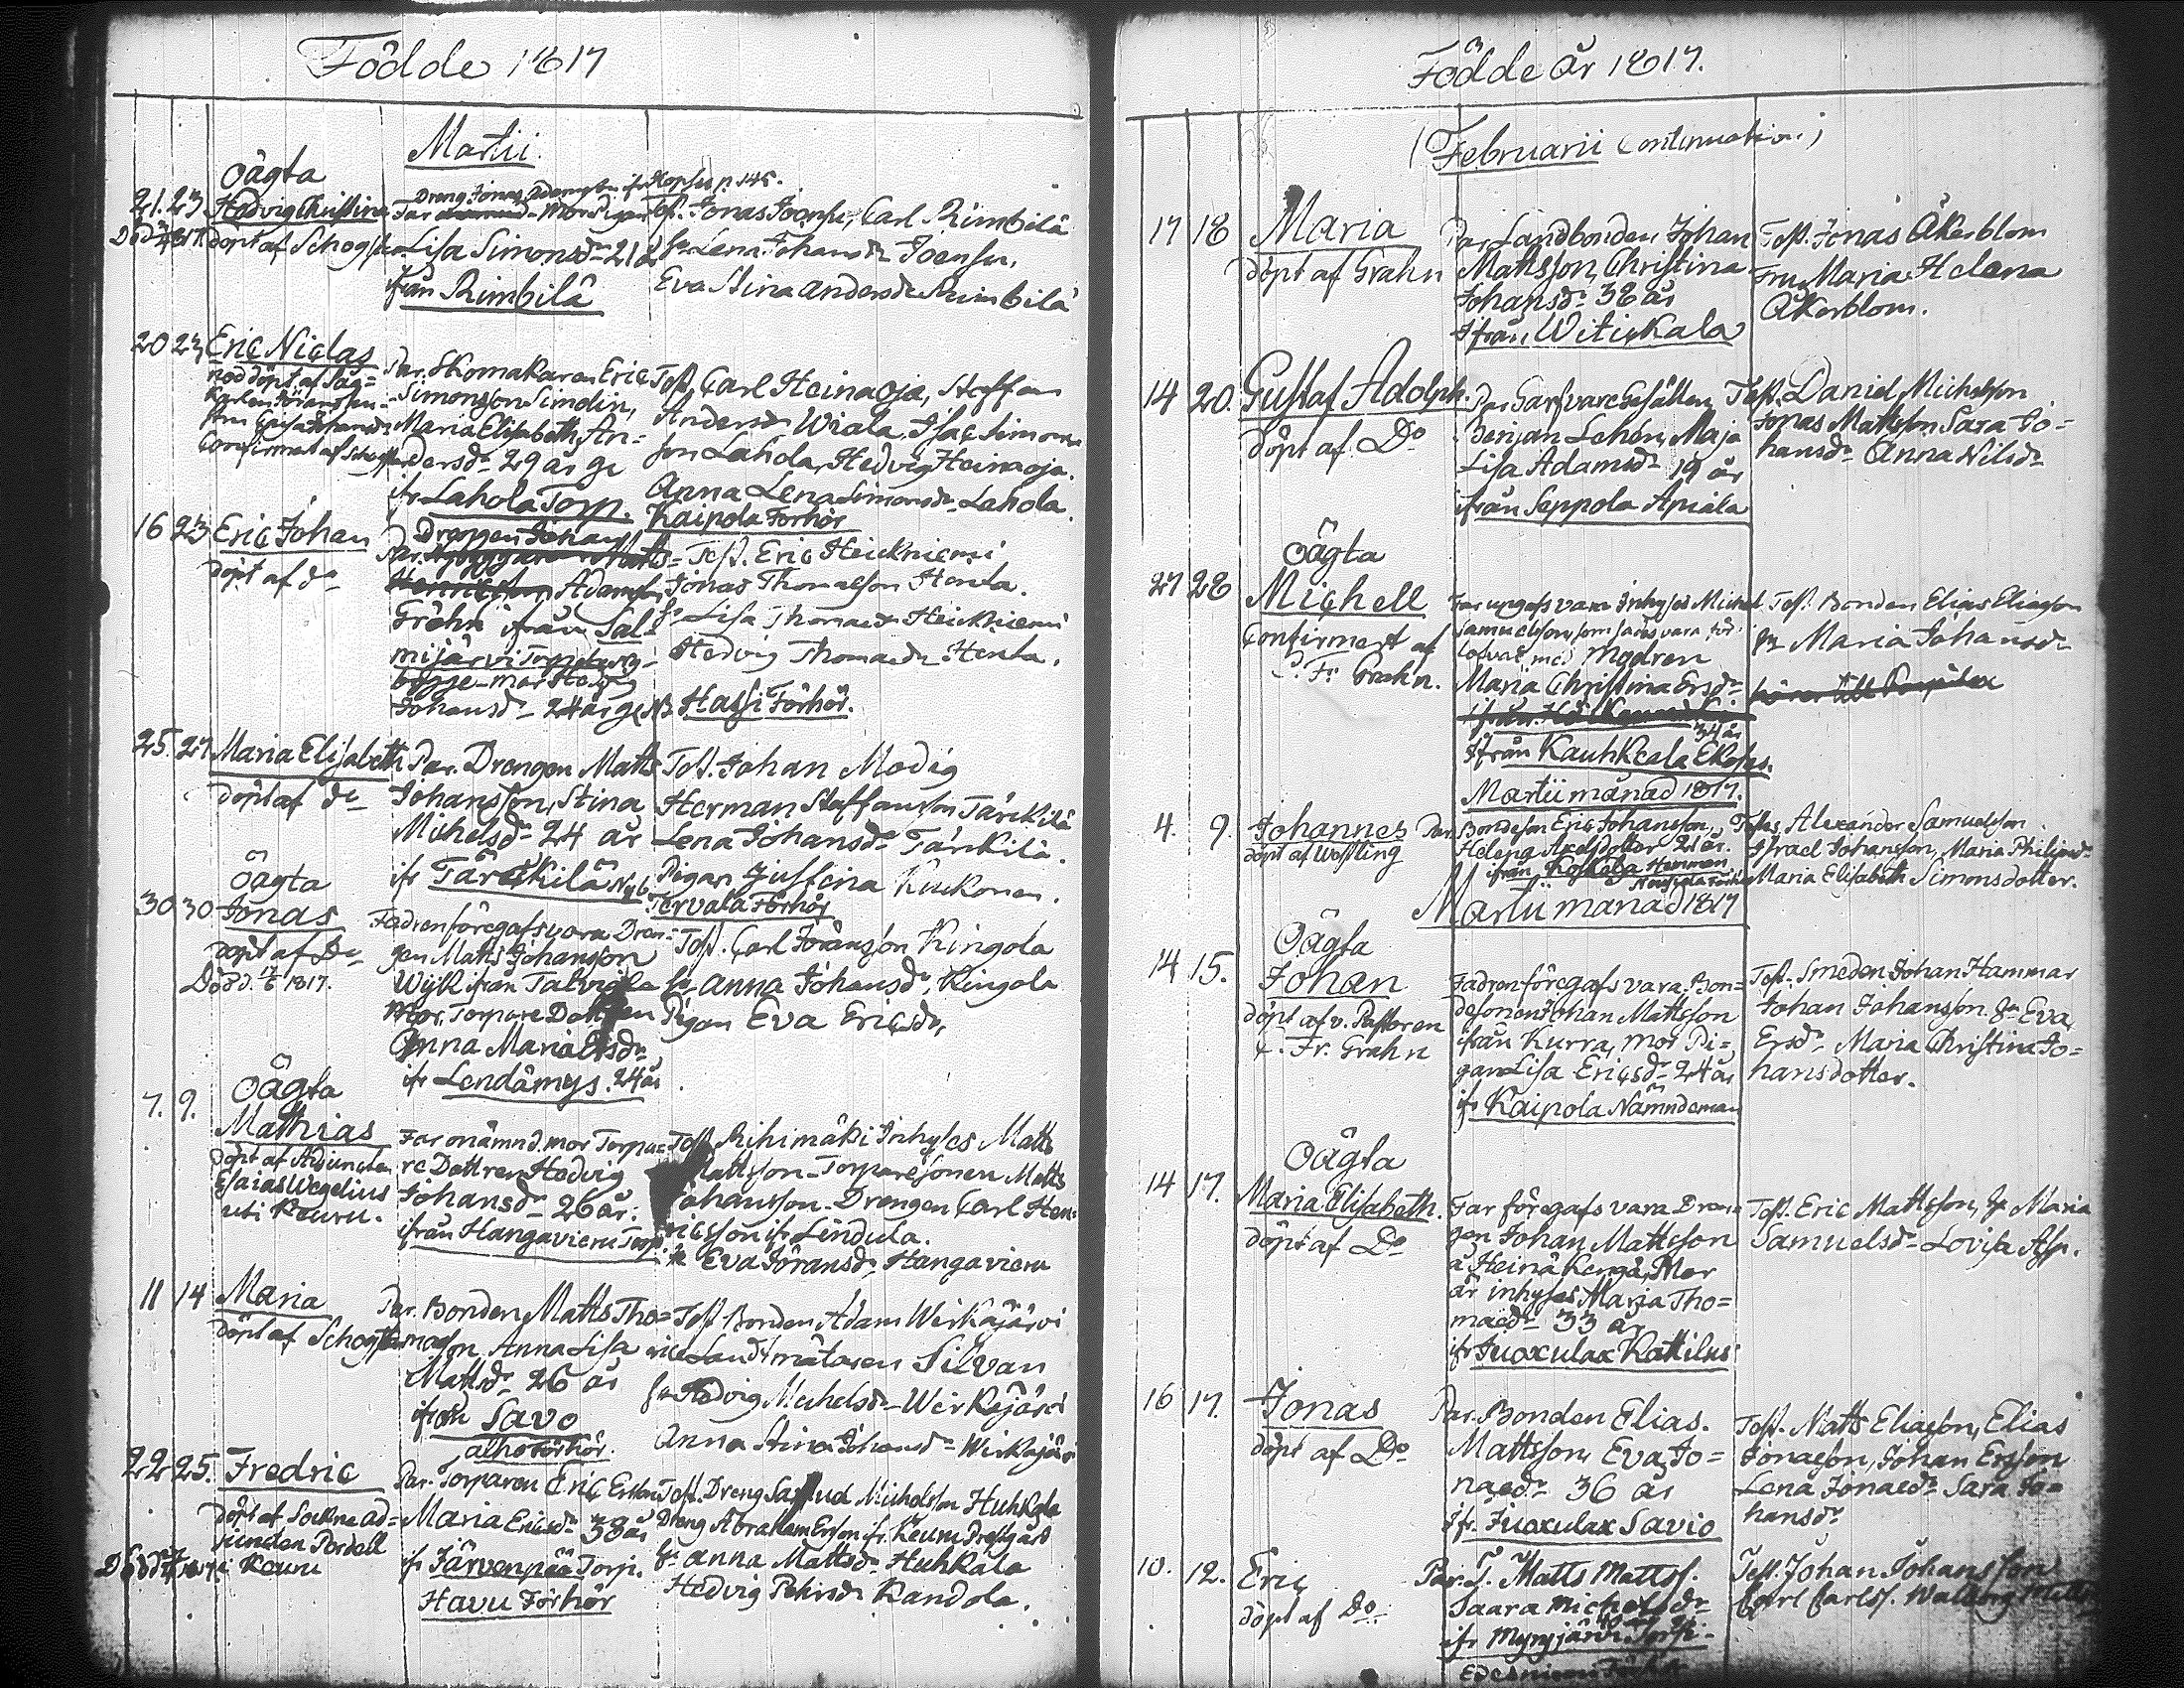 Födde 1817
Martii
Oägta
21. 23 Hedvig Christina
döpt af Schog
Lisa Simonsdr 21 år
från Rimbilä
Test. Jonas Joense, Carl Rimbilä
Lena Johansdr Joensu,
Eva Stina Andersdr Rimbilä
20 23 Eric Niclas
nöddöpt af
Par. Skomakaren Eric
Simonsson Simolin,
Maria Elisabeth An=
dersdr 29 år g
ifr Lahola Torp.
Test. Carl Heinaoja, Staffan
Andersson Wiala, Isac Simons
son Lahola, Hedvig Heinaoja.
Anna Lena Simonsdr Lahola
Kaipola Förhör
16 23 Eric Johan
döpt af do
Drängen Johan
Adamsson
Gröhn ifrån Sal=
mijärvi Torp
bygge - mor Hedvig
Johansdr 24 år g
Test. Eric Heickniemi
Jonas Thomasson Henla.
hr Lisa Thomasdr Heickniemi
Hedvig Thomasdr Henla.
Hassi Förhör.
25. 27 Maria Elisabeth
döpt af do
Par. Drengen Matts
Johansson, Stina
Michelsdr 24 år
ifr Tärckilä Nyb.
Test. Johan Modig
Herman Staffansson Tärckilä
Lena Johansdr Tärckilä.
Pigan Justina Kuckonen.
Tervala Förhör
Oägta
30 30 Jonas
döpt af Do
Död d. 17/6 1817.
Fadren föregafs vara Dren=
gen Matts Johansson
Wijk ifrån Talviala
Mor, Torpare Dottren
Anna Maria Ersdr
ifr Lendämys. 24 år
Test. Carl Göransson Kingola
hr Anna Johansdr Kingola
Pigan Eva Ericsdr
Oägta
7. 9. Mathias
döpt af Adjuncten
Esaias Wegelius
uti Keuru.
Far onämnd. mor Torpa=
re Dottren Hedvig
Johansdr 26 år.
ifrån Hangavieru Torp
Test. Rihimäki Inhyses Matts
Mattsson - Torparesonen Matts
Johansson - Drengen Carl Hen=
ricsson ifr Lendula.
hr Eva Göransdr Hangavieru
11 14 Maria
döpt af Schog
Par. Bonden Matts Tho=
masson Anna Lisa
Mattsdr 26 år
ifrån Savo
alho Förhör.
Test. Bonden Adam Wirkajärvi
Landtmätaren Silvan
hr Hedvig Michelsdr Wirkajärvi
Anna Stina Johansdr Wirkajärvi
22 25. Fredric
döpt af Sockne Ad=
juncten Pordell
i Keuru
Par. Torparen Eric Ersson
Maria Ericsdr 38 år
ifr Järvenpää Torp.
Havu Förhör
Test. Dreng Michelsson Huhkala
Dreng Abraham Ersson ifr. Keuru Prestgård
hr Anna Mattsdr Huhkala
Hedvig Pehrsdr Kandola.
Födde år 1817.
(Februarii Continuation)
17 18 Maria
döpt af Grahn
Par Landbonden Johan
Mattsson, Christina
Johansdr 38 år
ifrån Witickala
Test. Jonas Åkerblom
Fru Maria Helena
Åkerblom.
14 20. Gustaf Adolph.
döpt af Do
Par Garfvare Gesällen
Benjan Lehén, Maja
Lisa Adamsdr 19 år
ifrån Seppola Apiala
Test. Daniel Michelsson
Jonas Mattsson Sara Jo=
hansdr Anna Nilsdr
Oägta
27 28 Michell
Confirmert af
C. Fr. Grahn.
Far upgafs vara Inhyses Michel
Samuelsson, som sades vara för=
lovat med Modren
Maria Christina Ersdr
34 år
ifrån Kauhkeala Ekohs.
Test. Bonden Elias Eliasson
hr Maria Johansdr
Martii månad 1817.
4. 9. Johannes
döpt af Westling
Par. Bondeson Eric Johansson,
Helena Axelsdotter 21 år.
ifrån Koskela Hinnon
Testes Alexander Samuelsson
Israel Johansson, Maria Philipsdr
Maria Elisabeth Simonsdotter.
Martii månad 1817
Oägta
14 15. Johan
döpt af v. Pastoren
C. Fr. Grahn
Fadren föregafs vara Bon=
desonen Johan Mattsson
ifrån Kurra, mor Pi=
gan Lisa Ericsdr 24 år
ifr Kaipola Nämndeman
Test. Smeden Johan Hammar
Johan Johansson. hr Eva
Ersdr. Maria Christina Jo=
hansdotter.
Oägta
14 17. Maria Elisabeth.
döpt af Do
Far föregafs vara Dren=
gen Johan Mattsson
å Heinäkenga, Mor
är inhyses Maria Tho=
masdr 33 år
ifr Juoxulax Kattilus
Test. Eric Mattsson, hr Maria
Samuelsdr Lovisa Asp.
16 17. Jonas
döpt af Do
Par. Bonden Elias.
Mattsson Eva Jo=
nasdr 36 år
ifr. Juoxulax Savio
Test. Matts Eliasson, Elias
Jonasson, Johan Ersson
Lena Jonasdr Sara Jo=
hansdr
10. 12. Eric
döpt af Do.
Par. T. Matts Mattss.
Saara Michelsdr
ifr Myryjärvi Torp.
Test. Johan Johansson
Carl Carlss. Walborg Matts